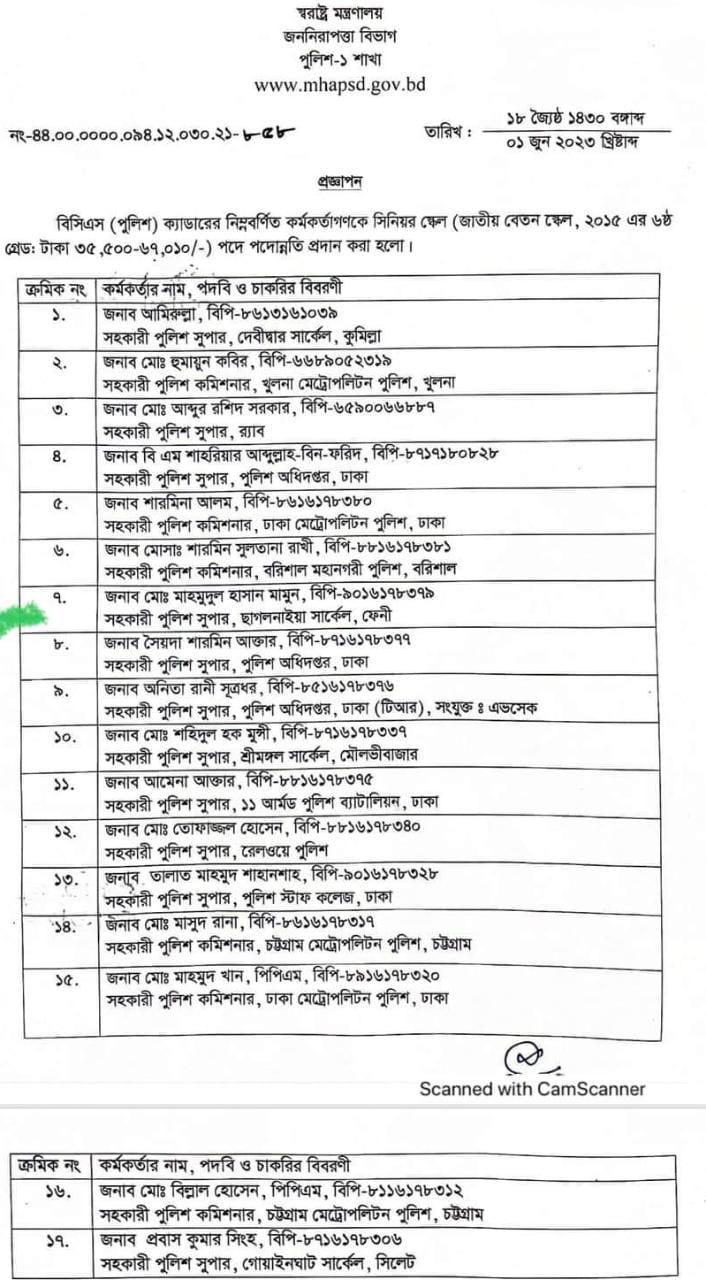 স্বরাষ্ট্র মন্ত্রণালয়
জননিরাপত্তা বিভাগ
পুলিশ-১ শাখা
www.mhapsd.gov.bd
নং-৪৪.০০.০০০০.০৯৪.১২.০৩০.২১-৮৫৮
তারিখ : ১৮ জ্যৈষ্ঠ ১৪৩০ বঙ্গাব্দ
০১ জুন ২০২৩ খ্রিষ্টাব্দ
প্রজ্ঞাপন
বিসিএস (পুলিশ) ক্যাডারের নিম্নবর্ণিত কর্মকর্তাগণকে সিনিয়র স্কেল (জাতীয় বেতন স্কেল, ২০১৫ এর ৬ষ্ঠ
গ্রেড: টাকা ৩৫,৫০০-৬৭,০১০/-) পদে পদোন্নতি প্রদান করা হলো।
ক্রমিক নং কর্মকর্তার নাম, পদবি ও চাকরির বিবরণী
১. জনাব আমিরুল্লা, বিপি-৮৬১৩১৬১০৩৯
সহকারী পুলিশ সুপার, দেবীদ্বার সার্কেল, কুমিল্লা
২. জনাব মোঃ হুমায়ুন কবির, বিপি-৬৬৮৯০৫২৩১৯
সহকারী পুলিশ কমিশনার, খুলনা মেট্রোপলিটন পুলিশ, খুলনা
৩. জনাব মোঃ আব্দুর রশিদ সরকার, বিপি-৬৫৯০০৬৬৮৮৭
সহকারী পুলিশ সুপার, র‍্যাব
৪. জনাব বি এম শাহরিয়ার আব্দুল্লাহ-বিন-ফরিদ, বিপি-৮৭১৭১৮০৮২৮
সহকারী পুলিশ সুপার, পুলিশ অধিদপ্তর, ঢাকা
৫. জনাব শারমিনা আলম, বিপি-৮৬১৬১৭৮৩৮০
সহকারী পুলিশ কমিশনার, ঢাকা মেট্রোপলিটন পুলিশ, ঢাকা
৬. জনাব মোসাঃ শারমিন সুলতানা রাখী, বিপি-৮৮১৬১৭৮৩৮১
সহকারী পুলিশ কমিশনার, বরিশাল মহানগরী পুলিশ, বরিশাল
৭. জনাব মোঃ মাহমুদুল হাসান মামুন, বিপি-৯০১৬১৭৮৩৭৯
সহকারী পুলিশ সুপার, ছাগলনাইয়া সার্কেল, ফেনী
৮. জনাব সৈয়দা শারমিন আক্তার, বিপি-৮৭১৬১৭৮৩৭৭
সহকারী পুলিশ সুপার, পুলিশ অধিদপ্তর, ঢাকা
৯. জনাব অনিতা রানী সূত্রধর, বিপি-৮৫১৬১৭৮৩৭৬
সহকারী পুলিশ সুপার, পুলিশ অধিদপ্তর, ঢাকা (টিআর), সংযুক্ত ঃ এভসেক
১০. জনাব মোঃ শহিদুল হক মুন্সী, বিপি-৮৭১৬১৭৮৩৩৭
সহকারী পুলিশ সুপার, শ্রীমঙ্গল সার্কেল, মৌলভীবাজার
১১. জনাব আমেনা আক্তার, বিপি-৮৮১৬১৭৮৩৭৫
সহকারী পুলিশ সুপার, ১১ আর্মড পুলিশ ব্যাটালিয়ন, ঢাকা
১২. জনাব মোঃ তোফাজ্জল হোসেন, বিপি-৮৮১৬১৭৮৩৪০
সহকারী পুলিশ সুপার, রেলওয়ে পুলিশ
১৩. জনাব তালাত মাহমুদ শাহানশাহ, বিপি-৯০১৬১৭৮৩২৮
সহকারী পুলিশ সুপার, পুলিশ স্টাফ কলেজ, ঢাকা
১৪. জনাব মোঃ মাসুদ রানা, বিপি-৮৬১৬১৭৮৩১৭
সহকারী পুলিশ কমিশনার, চট্টগ্রাম মেট্রোপলিটন পুলিশ, চট্টগ্রাম
১৫. জনাব মোঃ মাহমুদ খান, পিপিএম, বিপি-৮৯১৬১৭৮৩২০
সহকারী পুলিশ কমিশনার, ঢাকা মেট্রোপলিটন পুলিশ, ঢাকা
Scanned with CamScanner
ক্রমিক নং কর্মকর্তার নাম, পদবি ও চাকরির বিবরণী
১৬. জনাব মোঃ বিল্লাল হোসেন, পিপিএম, বিপি-৮১১৬১৭৮৩১২
সহকারী পুলিশ কমিশনার, চট্টগ্রাম মেট্রোপলিটন পুলিশ, চট্টগ্রাম
১৭. জনাব প্রবাস কুমার সিংহ, বিপি-৮৭১৬১৭৮৩০৬
সহকারী পুলিশ সুপার, গোয়াইনঘাট সার্কেল, সিলেট